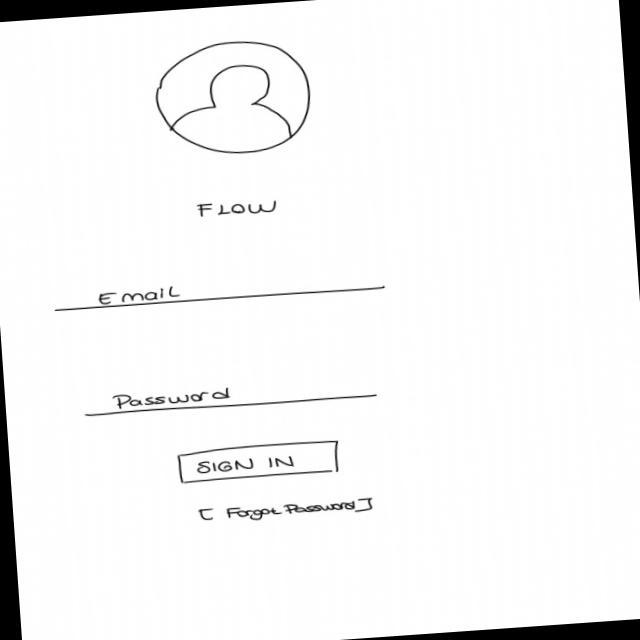 FLOW
Email
Password
SIGN IN
[ Forgot Password ]